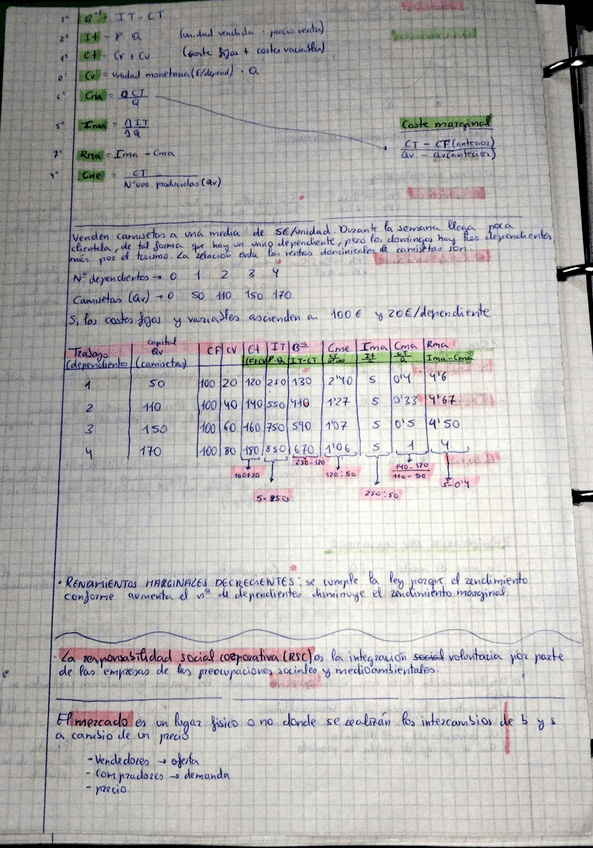 1º Bº = IT - CT
2º It = P · Q (unidad vendida · precio venta)
Ct = Cf + Cv (coste fijos + costes variables)
Cv = Unidad monetaria (€/depend) · Q
6º Cma = Δ CT / Q
5º Ima = Δ IT / Δ Q
Coste marginal
CT - CF (anterior) / Qv - Qv (anterior)
7º Rma = Ima - Cma
4º Cme = CT / Nº uds producidas (Qv)
Venden camisetas a una media de 5€/unidad. Durante la semana llega poca
clientela, de tal forma que hay un único dependiente, pero los domingos hay tres dependientes
más por el turismo. La relación entre las ventas dominicales de camisetas son:
Nº dependientes → 0 1 2 3 4
Camisetas (Qv) → 0 50 110 150 170
Si los costes fijos y variables ascienden a 100 € y 20€/dependiente
Trabajo (dependiente) | capital Qv (camisetas) | CF | CV | Ct (CF+CV) | IT P·Q | Bº IT-CT | Cme | Ima | Cma | Rma Ima-Cma
1 50 100 20 120 250 130 2'40 5 0'4 4'6
2 110 100 40 140 550 410 1'27 5 0'33 4'67
3 150 100 60 160 750 590 1'07 5 0'5 4'50
4 170 100 80 180 850 670 1'06 5 1 4
100+20 5·250 250-120 120:50 250:50 140-120 / 110-50 5-0'4
· RENDIMIENTOS MARGINALES DECRECIENTES: se cumple la ley porque el rendimiento
conforme aumenta el nº de dependientes disminuye el rendimiento marginal.
La responsabilidad social corporativa (RSC) es la integración social voluntaria por parte
de las empresas de las preocupaciones sociales y medioambientales.
El mercado es un lugar físico o no donde se realizan los intercambios de b y s
a cambio de un precio
- Vendedores → oferta
- Compradores → demanda
- precio.